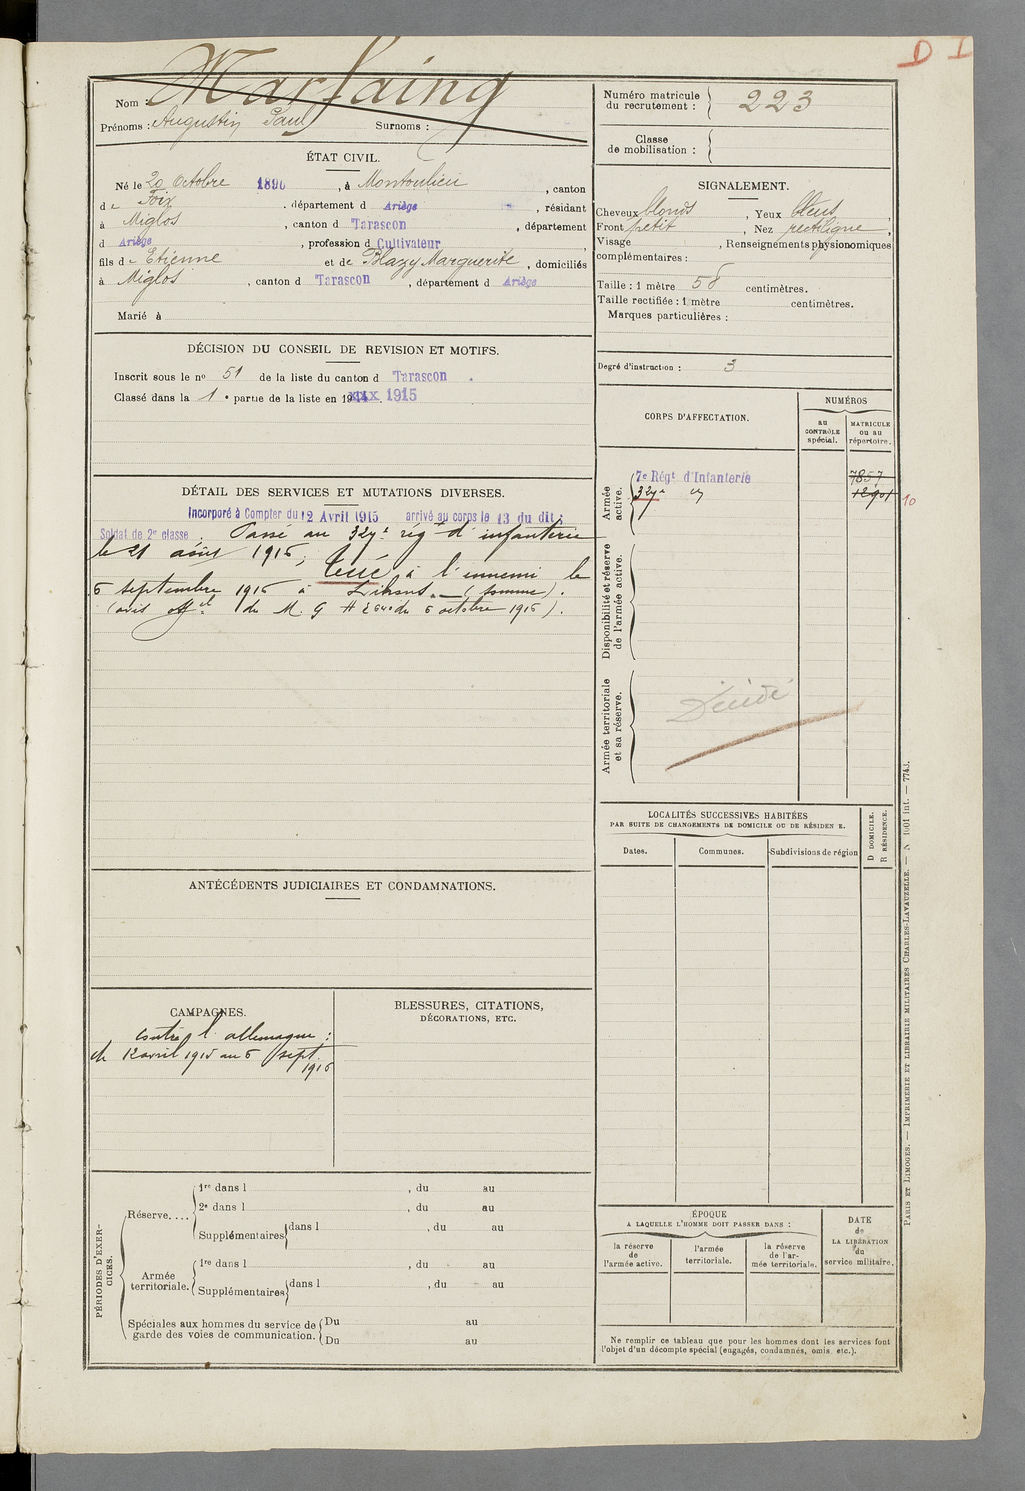 D I
Nom : Marfaing
Prénoms : Augustin Paul Surnoms :
Numéro matricule du recrutement : 223
Classe de mobilisation :
ÉTAT CIVIL.
Né le 20 Octobre 1896, à Montoulieu, canton
de Foix, département d Ariège, résidant
à Miglos, canton d Tarascon, département
d Ariège, profession d Cultivateur
fils de Etienne et de Blazy Marguerite, domiciliés
à Miglos, canton d Tarascon, département d Ariège
Marié à
SIGNALEMENT.
Cheveux blonds, Yeux bleus,
Front petit, Nez rectiligne,
Visage , Renseignements physionomiques
complémentaires :
Taille : 1 mètre 58 centimètres.
Taille rectifiée : 1 mètre centimètres.
Marques particulières :
Degré d'instruction : 3
DÉCISION DU CONSEIL DE REVISION ET MOTIFS.
Inscrit sous le nº 51 de la liste du canton d Tarascon.
Classé dans la 1e partie de la liste en 1915
CORPS D'AFFECTATION.
NUMÉROS
au CONTRÔLE spécial.
MATRICULE ou au répertoire.
Armée active.
7e Régt d'Infanterie 7857
327e 12901 10
Disponibilité et réserve de l'armée active.
Armée territoriale et sa réserve.
Décédé
DÉTAIL DES SERVICES ET MUTATIONS DIVERSES.
Incorporé à Compter du 12 Avril 1915 arrivé au corps le 13 du dit ;
Soldat de 2e classe. Passé au 327e régt d'infanterie
le 21 août 1916, tué à l'ennemi le
6 septembre 1916 à Lihons (Somme).
(avis offel de M. G. # du 6 octobre 1916).
ANTÉCÉDENTS JUDICIAIRES ET CONDAMNATIONS.
LOCALITÉS SUCCESSIVES HABITÉES
PAR SUITE DE CHANGEMENTS DE DOMICILE OU DE RÉSIDEN E.
Dates. Communes. Subdivisions de région
D DOMICILE.
R RÉSIDENCE.
CAMPAGNES.
contre l'allemagne :
du 12 avril 1915 au 6 sept.
1916
BLESSURES, CITATIONS,
DÉCORATIONS, ETC.
PÉRIODES D'EXERCICES.
Réserve....
1re dans l , du au
2e dans l , du au
Supplémentaires dans l , du au
Armée territoriale.
1re dans l , du au
Supplémentaires dans l , du au
Spéciales aux hommes du service de garde des voies de communication.
Du au
Du au
ÉPOQUE
A LAQUELLE L'HOMME DOIT PASSER DANS :
la réserve de l'armée active.
l'armée territoriale.
la réserve de l'armée territoriale.
DATE de LA LIBÉRATION du service militaire.
Ne remplir ce tableau que pour les hommes dont les services font
l'objet d'un décompte spécial (engagés, condamnés, omis, etc.).
PARIS ET LIMOGES. — IMPRIMERIE ET LIBRAIRIE MILITAIRES CHARLES-LAVAUZELLE. — N 1001 int. — 774J.